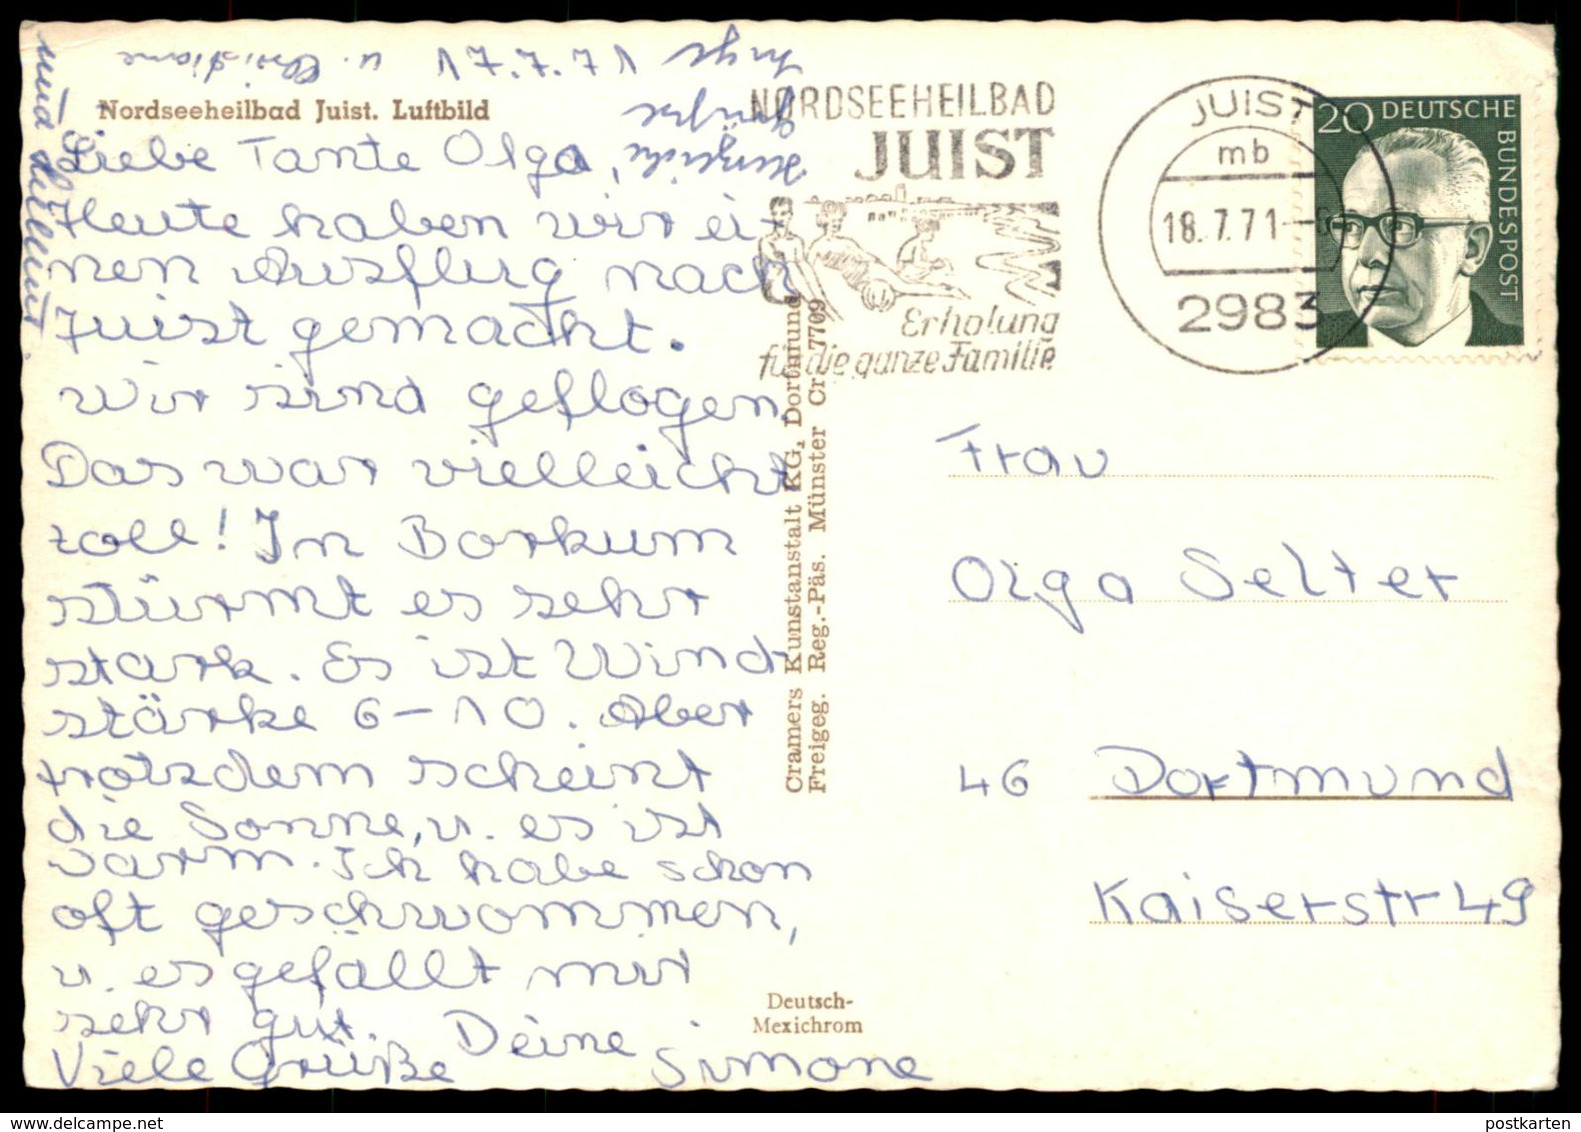 17.7.71
u. Christiane
Nordseeheilbad Juist. Luftbild
Liebe Tante Olga,
Heute haben wir ei-
nen Ausflug nach
Juist gemacht.
Wir sind geflogen.
Das war vielleicht
toll! In Borkum
stürmt es sehr
stark. Es ist Wind-
stärke 6-10. Aber
trotzdem scheint
die Sonne, u. es ist
warm. Ich habe schon
oft geschwommen,
u. es gefällt mir
sehr gut.
Viele Grüße Deine Simone
Herzliche
Grüße
Inge
und Hellmut.
Cramers Kunstanstalt KG, Dortmund
Freigeg. Reg.-Päs. Münster Cr 7709
Deutsch-
Mexichrom
NORDSEEHEILBAD
JUIST
Erholung
für die ganze Familie
JUIST
mb
18.7.71
2983
20 DEUTSCHE
BUNDESPOST
Frau
Olga Selter
46 Dortmund
Kaiserstr 49
postkarten